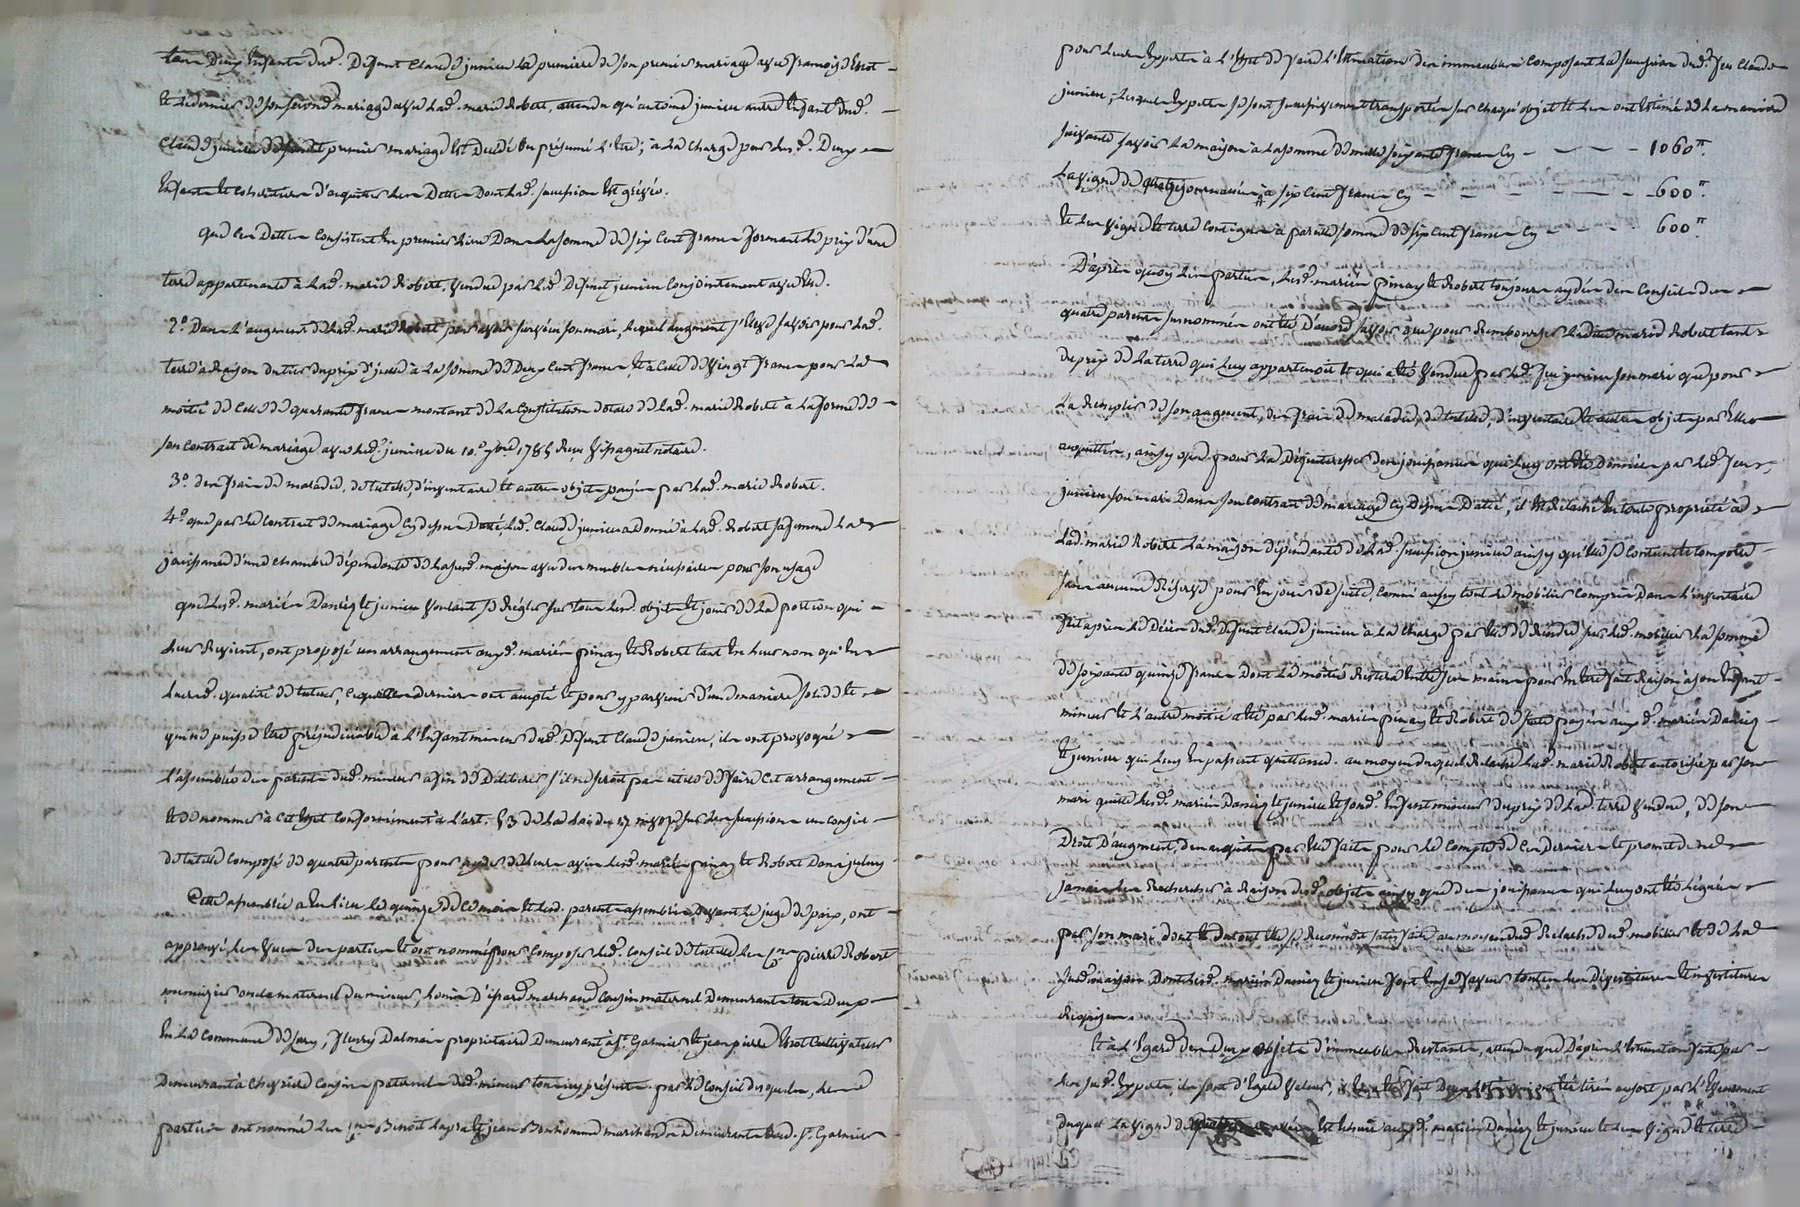 tous deux enfants dud. defunt Claude junieu la premiere de son premier mariage avec françoise Brot
et le dernier de son second mariage avec lad. marie Robert, attendu qu'antoine junieu autre enfant dud.
Claude junieu dudit premier mariage est decédé ou présumé l'etre; à la charge par lesd. deux
enfants et cohéritiers d'acquitter les dettes dont lad. succession est grévée.
que ces dettes consistent en premier lieu dans la somme de six cent francs formant le prix d'une
terre appartenante à lad. marie Robert, vendue par led. defunt junieu conjointement avec elle.
2º. dans l'augment de lad. marie Robert pour avoir survécu son mari, lequel augment s'eleve savoir pour lad.
terre à raison du tiers du prix d'icelle à la somme de deux cent francs, et à celle de vingt francs pour la
moitié de celle de quarante francs montant de la constitution dotale de lad. marie Robert à la forme de
son contrat de mariage avec led. junieu du 10.e 9bre 1785 reçu notaire.
3º. des frais de maladie, de tutelle, d'inventaire et autres objets payés par lad. marie Robert.
4º. que par le contrat de mariage cy dessus datté, led. Claude junieu a donné à lad. Robert sa femme la
jouissance d'une chambre dépendante de la susd. maison avec des meubles nécessaires pour son usage
que lesd. mariés Danciq et junieu voulant se régler sur tous lesd. objets et jouir de la portion qui
leur revient, ont proposé un arrangement auxd. mariés pinay et Robert tant en leurs noms qu'en
leurd. qualité de tuteurs, lesquels derniers ont accepté et pour y parvenir d'une maniere solide et
qui ne puisse etre préjudiciable à l'enfant mineur dud. defunt Claude junieu, ils ont provoqué
l'assemblée des parents dud. mineur afin de déliberer s'il ne seroit pas utile de faire cet arrangement
et de nommer à cet effet conformément à l'art. 53 de la loi du 17 nivose sur les successions un conseil
de tutelle composé de quatre parents pour ayder de leurs avis lesd. mariés pinay et Robert dans icelui
Cette assemblée a eu lieu le quinze de ce mois et lesd. parents assemblés devant le juge de paix, ont
approuvé les vues des parties et ont nommé pour composer led. conseil de tutelle les Cens pierre Robert
menuizier oncle maternel du mineur, marchand cousin maternel demeurants tous deux
en la commune de Sury, fleury Dalmais propriétaire demeurant à St. Garmier et jean pierre Brot cultivateur
demeurant à cousins paternels dud. mineur tous icy présents. par le conseil desquels, les
parties ont nommé les cens Benoit Lapra et jean Bonhomme marchands demeurants aud. St. Garmier
pour leurs experts à l'effet de faire l'estimation des immeubles composant la succession dud. feu Claude
junieu; lesquels experts se sont successivement transportés sur chaque objet et les ont estimé de la maniere
suivante savoir la maison à la somme de mille soixante francs cy - - - - 1060 ₶.
La vigne de quatre journaux à six cent francs cy - - - - - - 600 ₶.
et les vigne et terre contigues à pareille somme de six cent francs cy - - - 600 ₶.
D'apres quoy les parties, lesd. mariés pinay et Robert toujours aydés des conseils des
quatre parents surnommés ont été d'accord savoir que pour rembourser ladite marie Robert tant
du prix de la terre qui luy appartenoit et qui a été vendue par led. feu junieu son mari que pour
la remplir de son augment, des frais de maladie, de tutelle, d'inventaire et autres objets par elle
acquittés, ainsy que pour la désinteresser des jouissances qui luy ont été données par led. feu
junieu son mari dans son contrat de mariage cy dessus datté, il est relaché en toute propriété à
lad. marie Robert la maison dépendante de lad. succession junieu ainsy qu'elle se contient et comporte
sans aucune réserve pour en jouir de suite, comme aussy tout le mobilier compris dans l'inventaire
fait après le décès dud. defunt Claude junieu à la charge par elle de rendre sur led. mobilier la somme
de soixante quinze francs dont la moitié restera entre ses mains pour en etre fait raison à son enfant
mineur et l'autre moitié a été par lesd. mariés pinay et Robert de suite payée auxd. mariés Danciq
et junieu qui leur en passent quittance. au moyen duquel relaché lad. marie Robert autorisée par son
mari quitte lesd. mariés Danciq et junieu et sond. enfant mineur du prix de lad. terre vendue, de son
droit d'augment, des acquits par elle faits pour le compte de ces derniers et promet de ne
jamais les rechercher à raison desd. objets ainsy que des jouissances qui luy ont été léguées
par son mari, dont et du tout elle se reconnoit satisfaite au moyen dud. relaché dud. mobilier et de la
susd. maison dont lesd. mariés Danciq et junieu font en sa faveur toutes les dévestitures et investitures
requises.
et à l'égard des deux objets d'immeubles restants, attendu que d'après l'estimation faite par
les susd. experts, ils sont d'égale valeur, il en a été fait deux lots qui ont été tirés au sort par l'évenement
duquel la vigne de est echue auxd. mariés Danciq et junieu et les vigne et terre